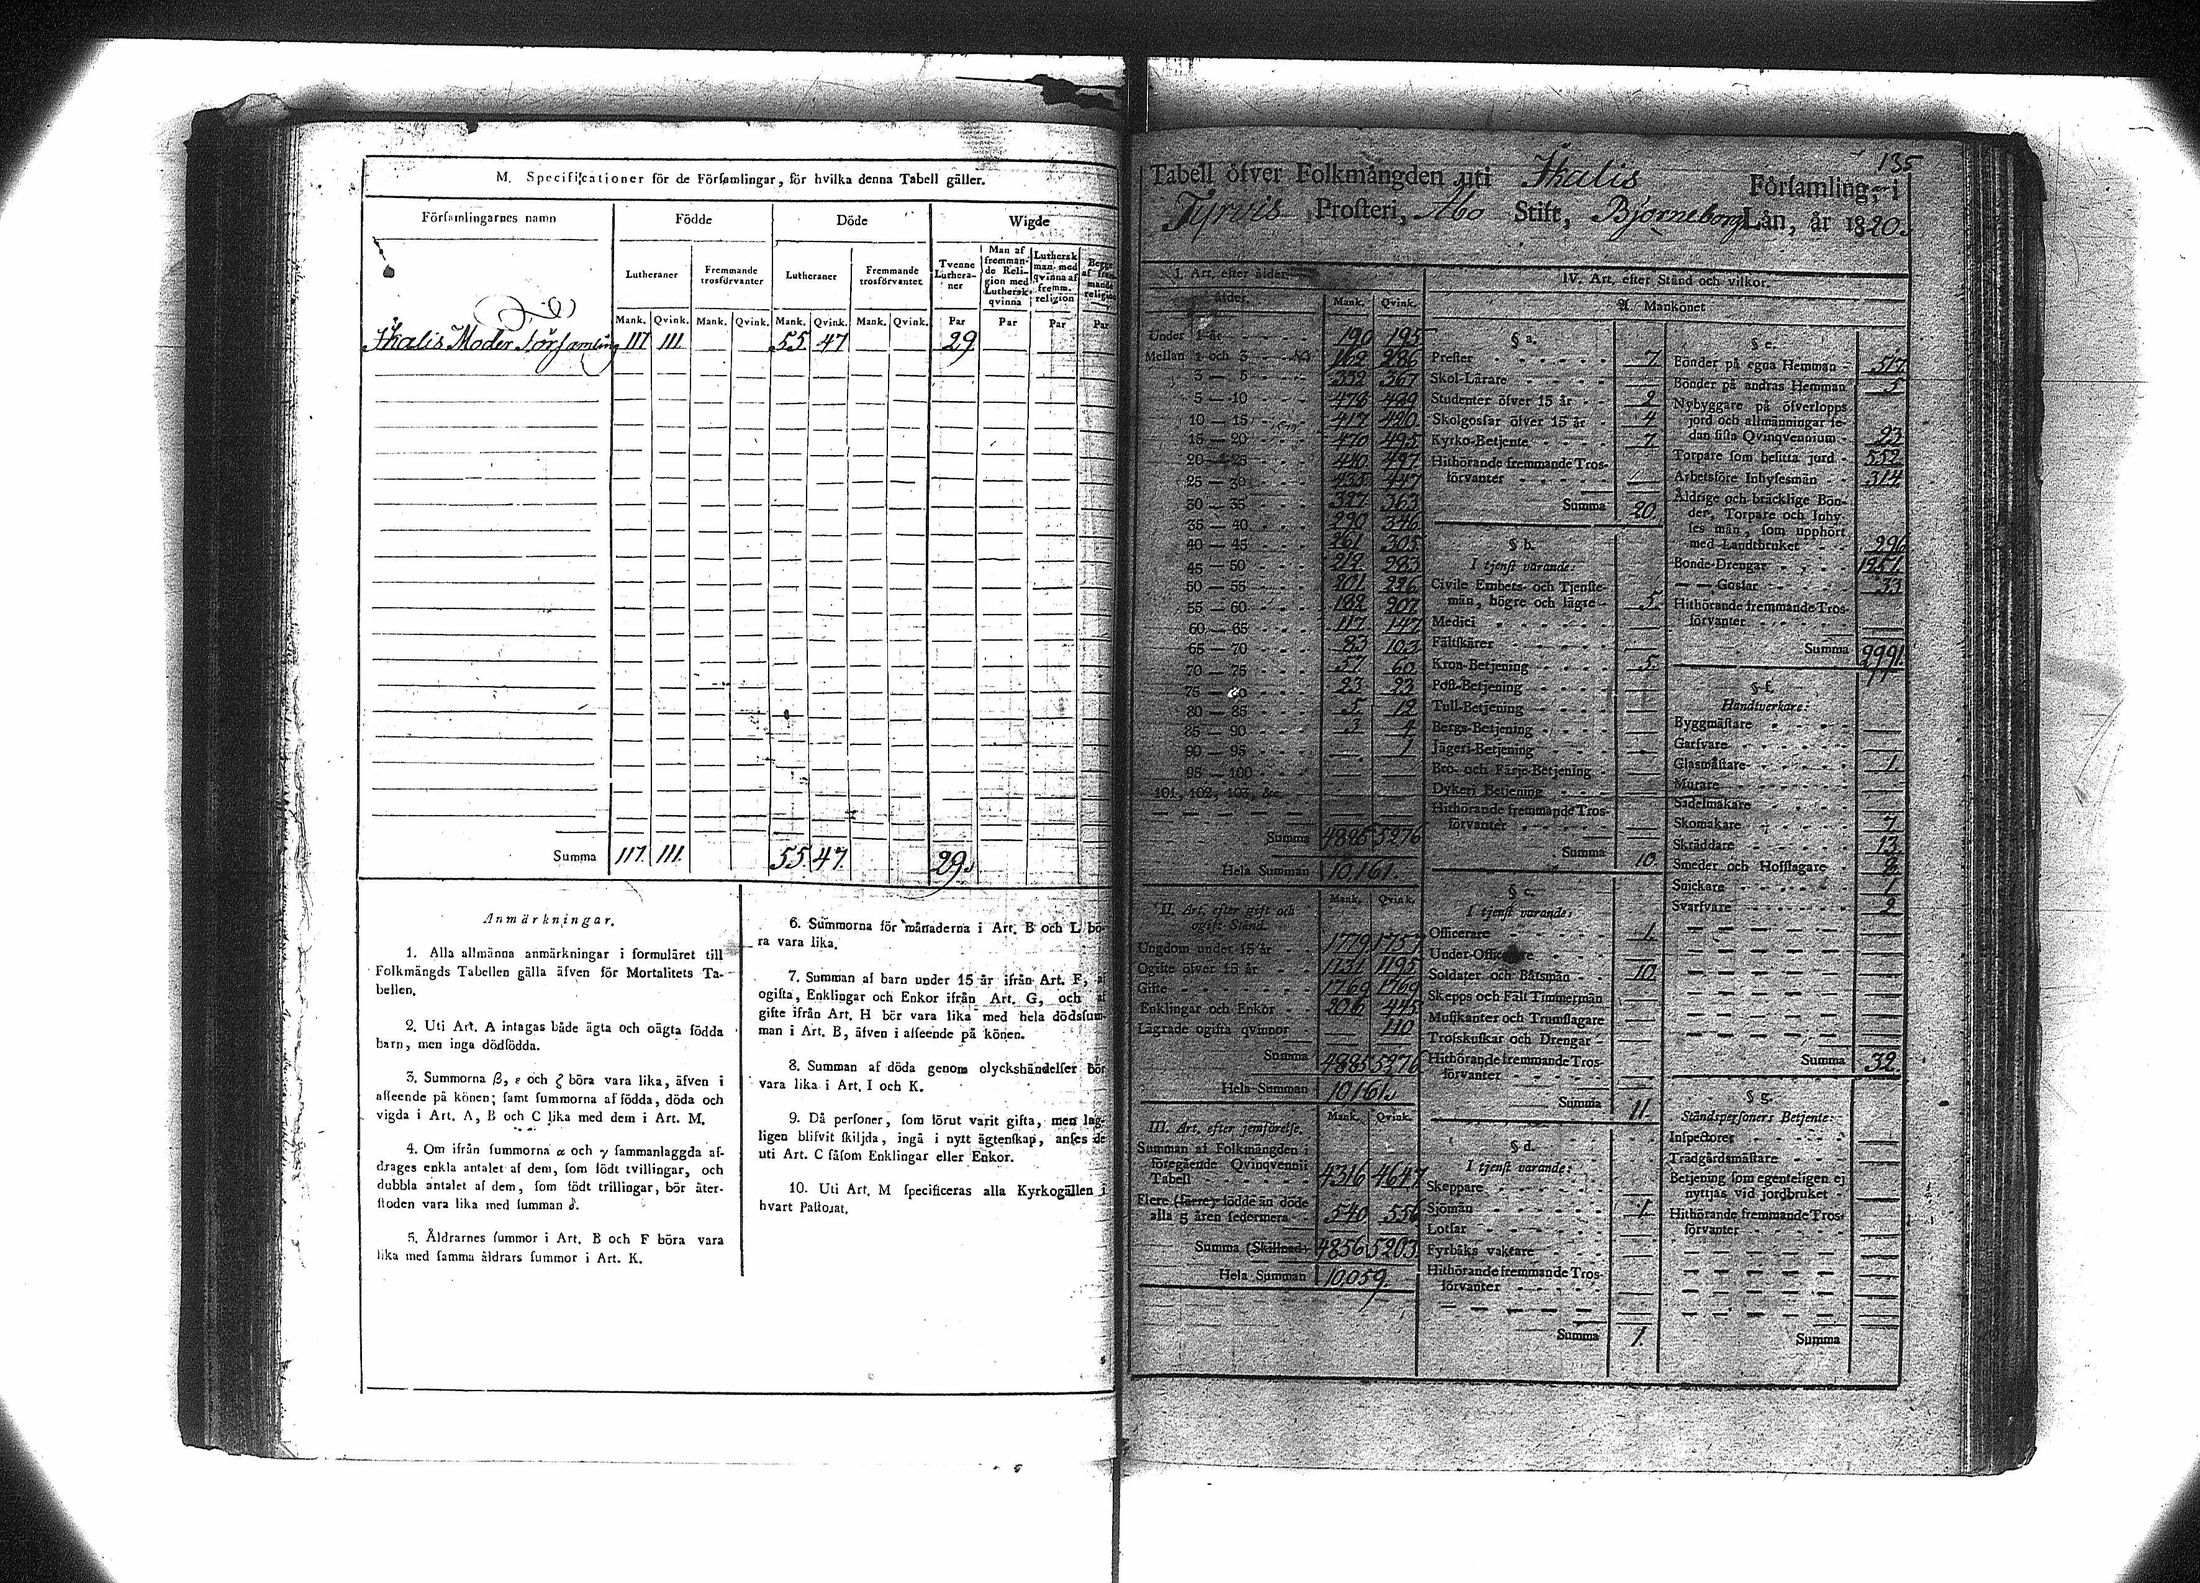 M. Specificationer för de Församlingar, för hvilka denna Tabell gäller.
Församlingarnes namn
Födde
Döde
Wigde
Lutheraner
Fremmande trosförvanter
Lutheraner
Fremmande trosförvanter
Tvenne Lutheraner
Man af fremmande Religion med Luthersk qvinna
Luthersk man med qvinna af fremm. religion
Mank. Qvink. Mank. Qvink. Mank. Qvink. Mank. Qvink. Par Par Par Par
Ikalis Moder Församling 117 111 55 47 29
Summa 117. 111. 55. 47. 29.
Anmärkningar.
1. Alla allmänna anmärkningar i formuläret till
Folkmängds Tabellen gälla äfven för Mortalitets Ta-
bellen.
2. Uti Art. A intagas både ägta och oägta födda
barn, men inga dödfödda.
3. Summorna β, ε och ζ böra vara lika, äfven i
afseende på könen; samt summorna af födda, döda och
vigda i Art. A, B och C lika med dem i Art. M.
4. Om ifrån summorna α och γ sammanlaggda af-
drages enkla antalet af dem, som födt tvillingar, och
dubbla antalet af dem, som födt trillingar, bör åter-
stoden vara lika med summan δ.
5. Åldrarnes summor i Art. B och F böra vara
lika med samma åldrars summor i Art. K.
6. Summorna för månaderna i Art. B och L bö-
ra vara lika.
7. Summan af barn under 15 år ifrån Art. F, af
ogifta, Enklingar och Enkor ifrån Art. G, och af
gifte ifrån Art. H bör vara lika med hela dödssum-
man i Art. B, äfven i afseende på könen.
8. Summan af döda genom olyckshändelser bör
vara lika i Art. I och K.
9. Då personer, som förut varit gifta, men lag-
ligen blifvit skiljda, ingå i nytt ägtenskap, anses de
uti Art. C såsom Enklingar eller Enkor.
10. Uti Art. M specificeras alla Kyrkogällen i
hvart Pastorat.
135
Tabell öfver Folkmängden uti Ikalis Församling, i
Tyrvis Prosteri, Åbo Stift, Björneborgs Län, år 1820.
I. Art. efter ålder.
ålder. Mank. Qvink.
Under 1 år 190 195
Mellan 1 och 3 286
3 — 5 332 367
5 — 10 478 489
10 — 15 417 420
15 — 20 470 495
20 — 25 440 497
25 — 30 435 447
30 — 35 327 363
35 — 40 290 346
40 — 45 261 305
45 — 50 212 283
50 — 55 201 226
55 — 60 182 207
60 — 65 117 147
65 — 70 83 103
70 — 75 57 60
75 — 80 23 23
80 — 85 5 12
85 — 90 3 4
90 — 95 1
95 — 100
101, 102, 103, &c.
Summa 4885 5276
Hela Summan 10,161.
II. Art. efter gift och ogift Stånd. Mank. Qvink.
Ungdom under 15 år 1779 1757
Ogifte öfver 15 år 1131 1195
Gifte 1769 1769
Enklingar och Enkor 206 445
Lägrade ogifta qvinnor 110
Summa 4885 5276
Hela Summan 10,161.
III. Art. efter jemförelse. Mank. Qvink.
Summan af Folkmängden i
föregående Qvinqvennii
Tabell 4316 4647
Flere (färre) födde än döde
alla 5 åren sedermera 540 556
Summa (Skillnad) 4856 5203
Hela Summan 10059.
IV. Art. efter Stånd och vilkor.
A. Mankönet
§ a.
Prester 7
Skol-Lärare
Studenter öfver 15 år 2
Skolgossar öfver 15 år 4
Kyrko-Betjente 7
Hithörande fremmande Tros-
förvanter
Summa 20
§ b.
I tjenst varande:
Civile Embets- och Tjenste-
män, högre och lägre 5.
Medici
Fältskärer
Kron-Betjening 5.
Post-Betjening
Tull-Betjening
Bergs-Betjening
Jägeri-Betjening
Bro- och Färje-Betjening
Dykeri Betjening
Hithörande fremmande Tros-
förvanter
Summa 10.
§ c.
I tjenst varande:
Officerare 1.
Under-Officerare
Soldater och Båtsmän 10.
Skepps och Fält Timmermän
Musikanter och Trumslagare
Trosskuskar och Drengar
Hithörande fremmande Tros-
förvanter
Summa 11.
§ d.
I tjenst varande:
Skeppare
Sjömän 1.
Lotsar
Fyrbåks vaktare
Hithörande fremmande Tros-
förvanter
Summa 1.
§ e.
Bönder på egna Hemman 517.
Bönder på andras Hemman 5
Nybyggare på öfverlopps
jord och allmänningar se-
dan sista Qvinqvennium 23
Torpare som besitta jord 552
Arbetsföre Inhysesmän 314
Åldrige och bräcklige Bön-
der, Torpare och Inhy-
ses män, som upphört
med Landtbruket 296
Bonde-Drengar 1251.
— — Gossar 33
Hithörande fremmande Tros-
förvanter
Summa 2991.
§ f.
Handtverkare:
Byggmästare
Garfvare
Glasmästare 1.
Murare
Sadelmakare
Skomakare 7
Skräddare 13
Smeder och Hofslagare 8
Snickare 1
Svarfvare 2
Summa 32.
§ g.
Ståndspersoners Betjente:
Inspectorer
Trädgårdsmästare
Betjening som egenteligen ej
nyttjas vid jordbruket
Hithörande fremmande Tros-
förvanter
Summa